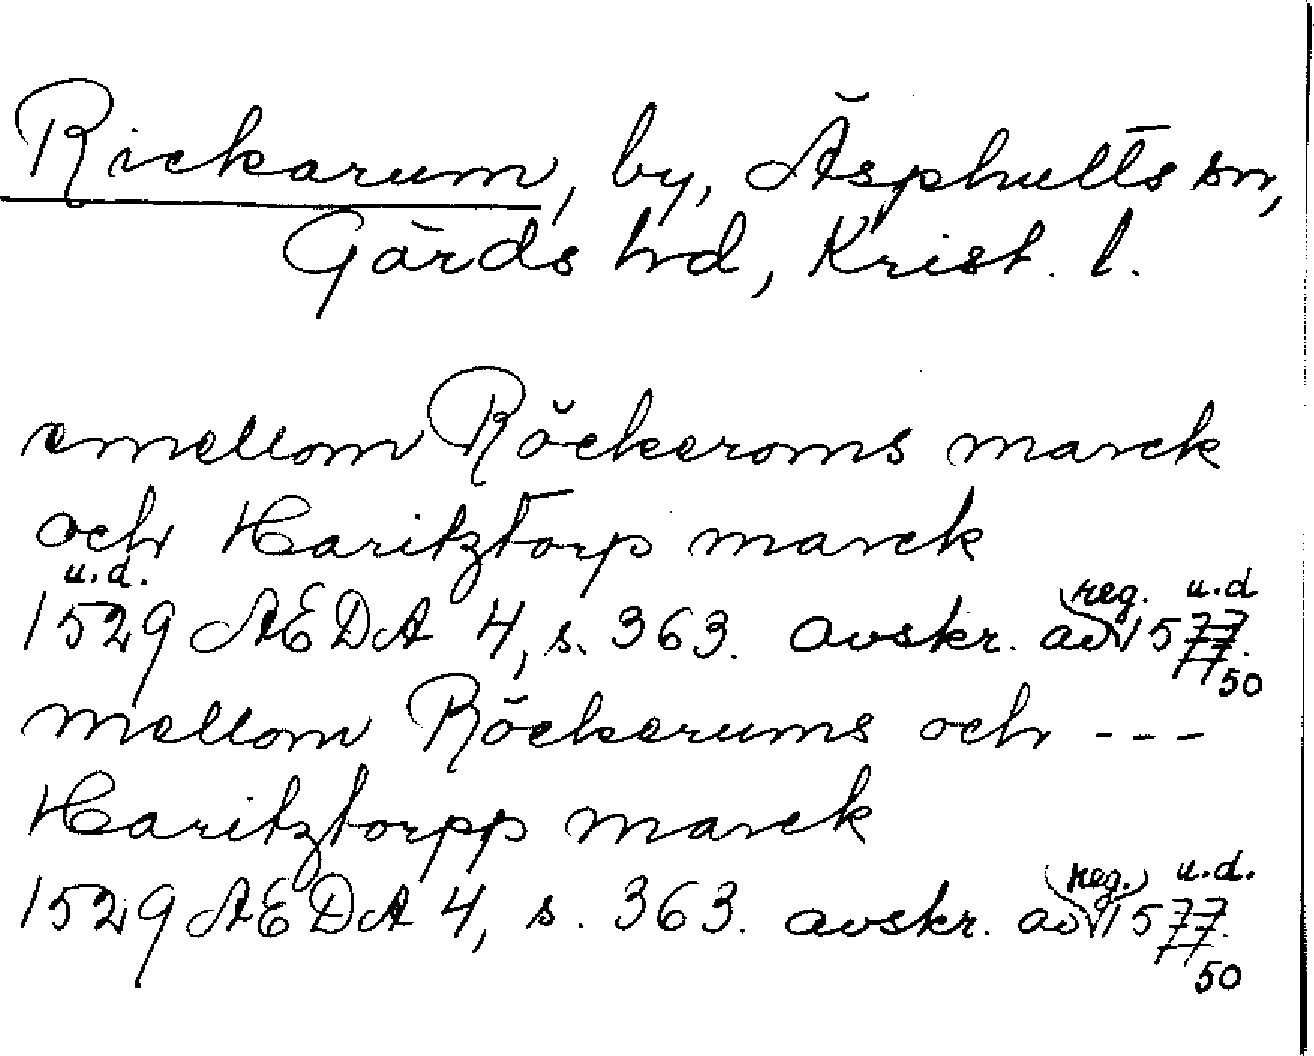 Rickarum, by, Äsphults sn,
Gärds hd, Krist. l.
emellom Röckeroms marck
och Haritztorp marck
u.d. reg. u.d
1529 AEDA 4, s. 363. avskr. av 1577.
50
mellom Röckerums och ---
Haritztorpp marck
(reg.) u.d.
1529 AEDA 4, s. 363. avskr. av 1577.
50